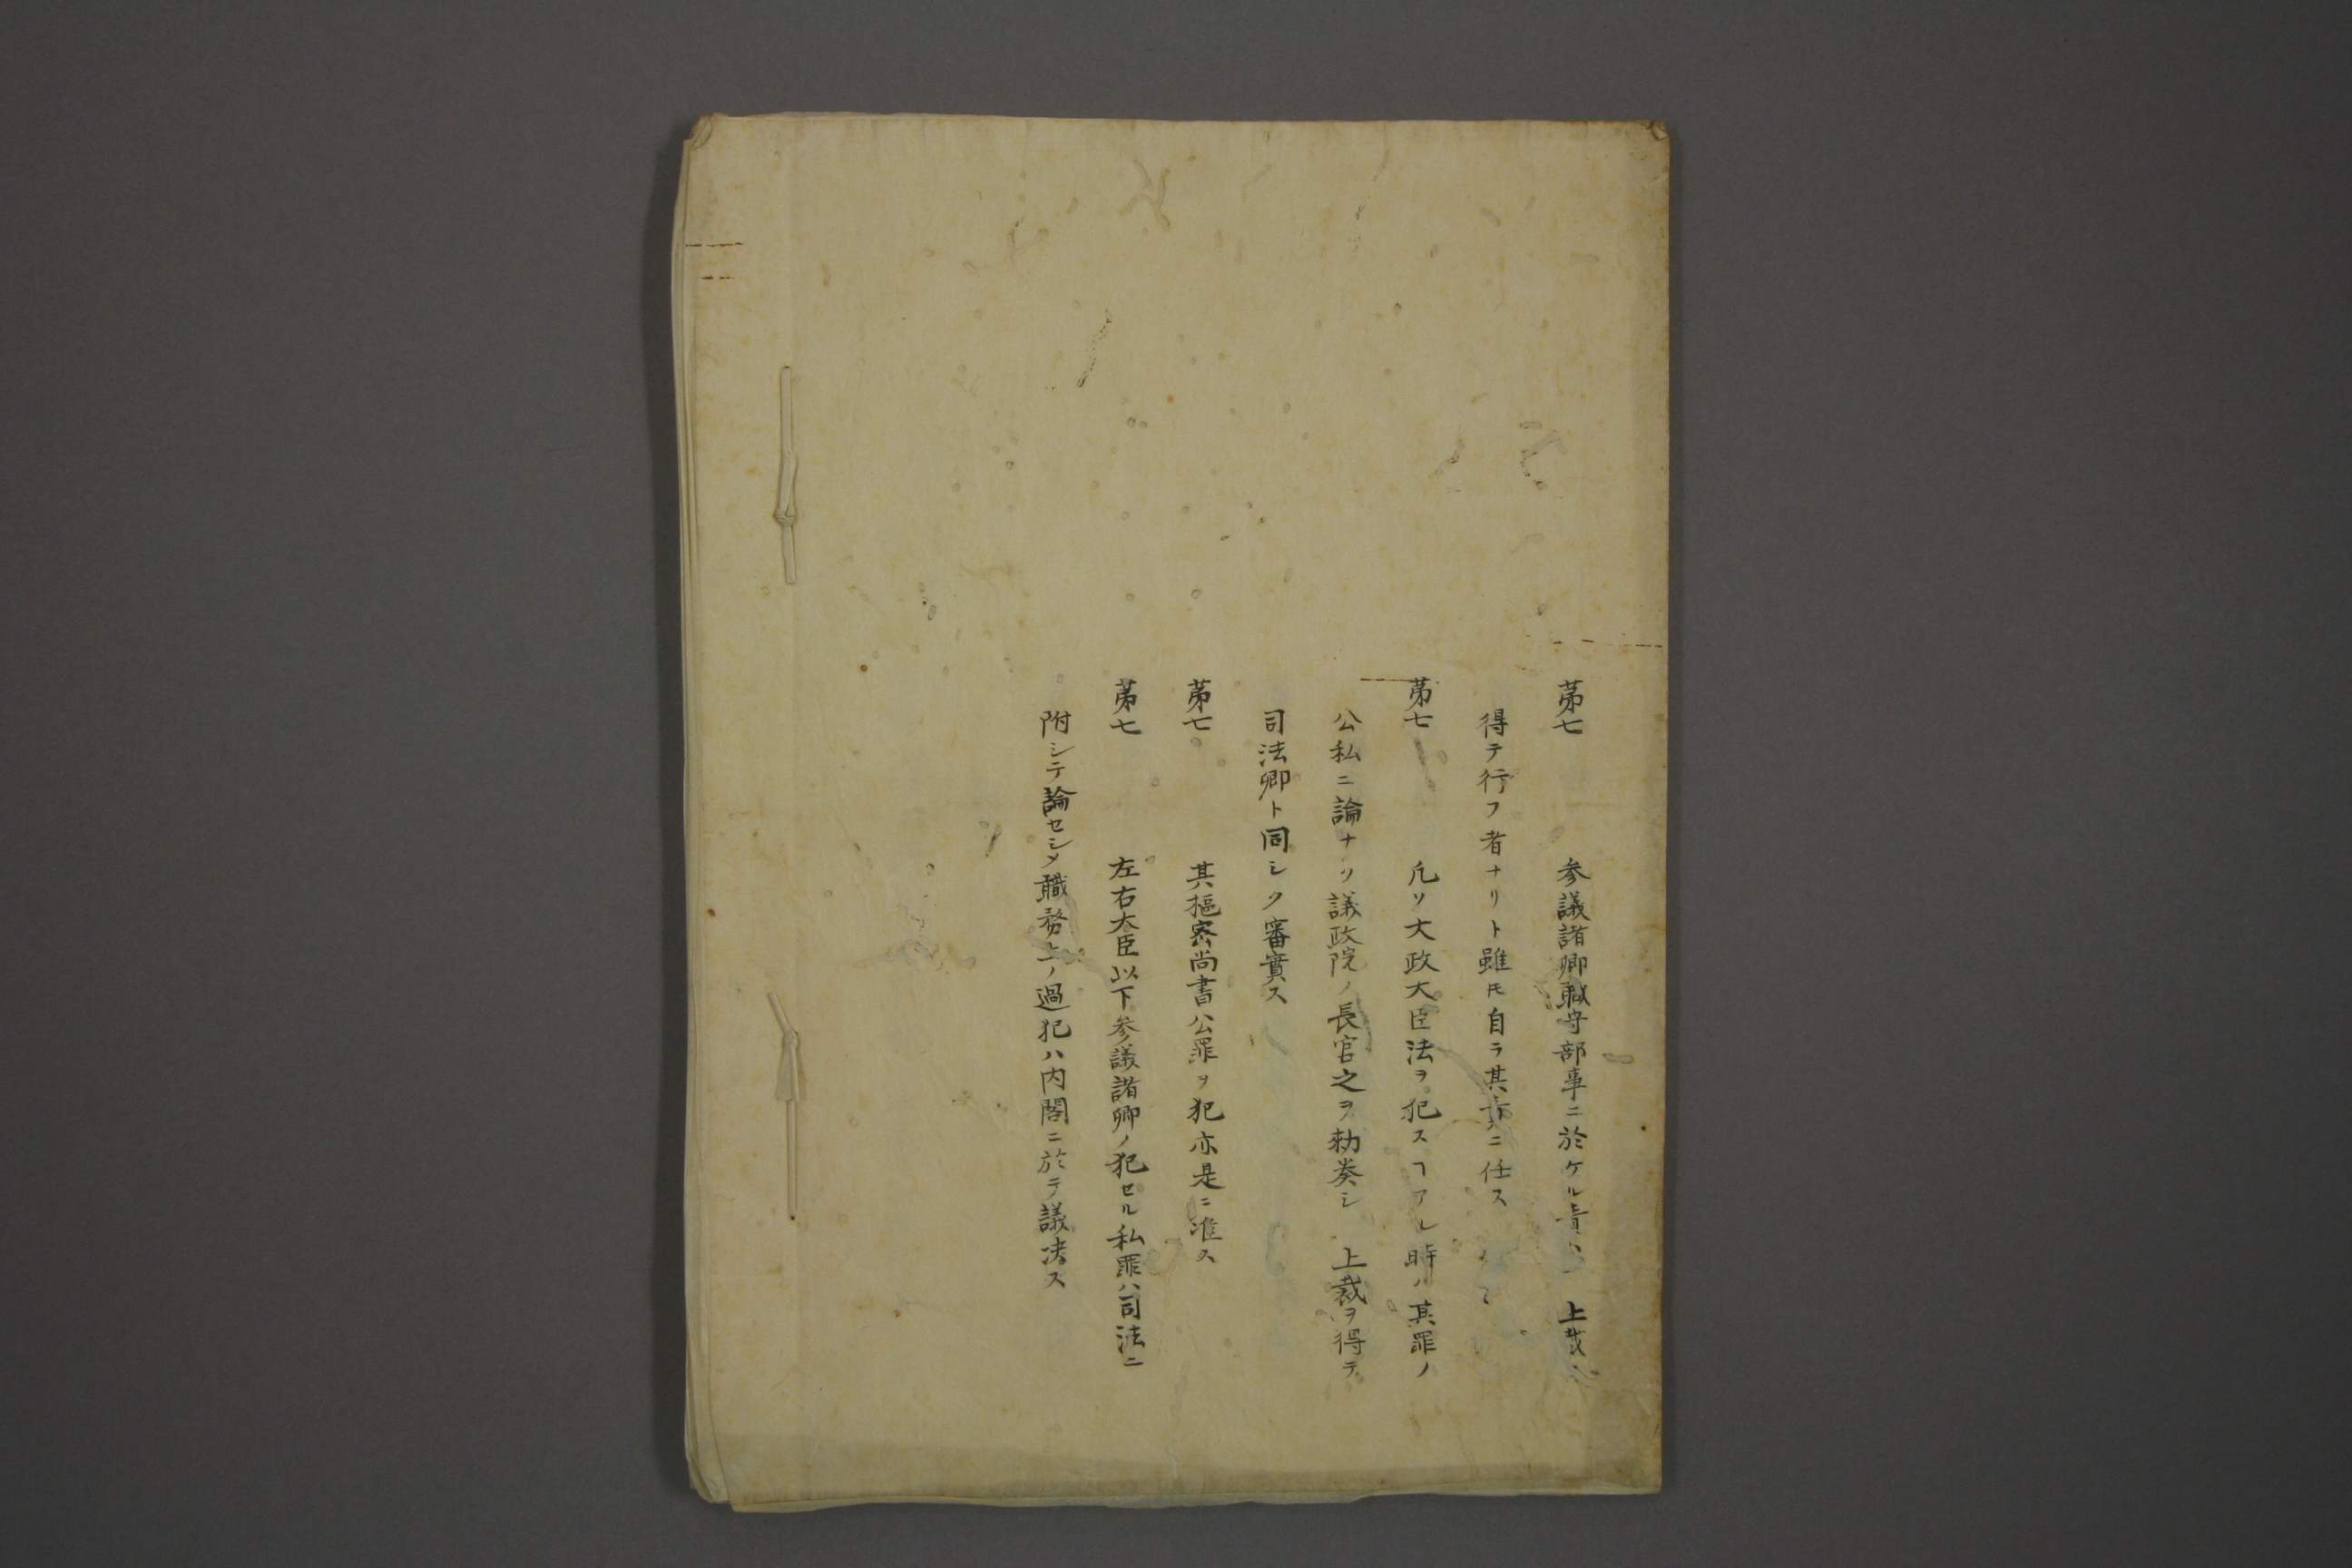 第七　参議諸卿職守部事ニ於ケル責ハ　上裁
得テ行フ者ナリト雖モ自ラ其責ニ任ス
第七　凡ソ大政大臣法ヲ犯スヿアレ時ハ其罪ノ
公私ニ論ナソ議政院ノ長官之ヲ勅奏シ　上裁ヲ得テ
司法卿ト同シク審實ス
第七　其樞密尚書公罪ヲ犯亦是ニ准ス
第七　左右大臣以下参議諸卿ノ犯セル私罪ハ司法ニ
附シテ論セシメ職務上ノ過犯ハ内閣ニ於テ議决ス